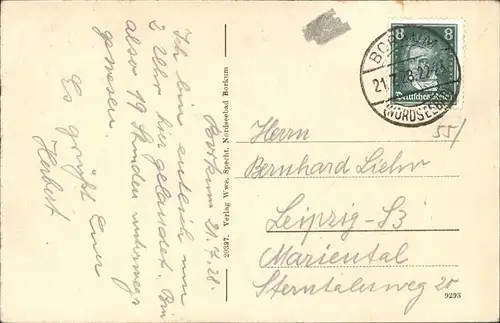 Borkum 21.7.28.
Ich bin endlich um
2 Uhr hier gelandet. Bin
also 19 Stunden unterwegs
gewesen.
Es grüßt Euer
Herbert.
20397. Verlag Wwe. Specht, Nordseebad Borkum
8 8
Deutsches Reich
BORKUM
21.7.28
(NORDSEEBAD)
55/
Herrn
Bernhard Liehr
Leipzig-S3
Mariental
Sterntalerweg 20
9293